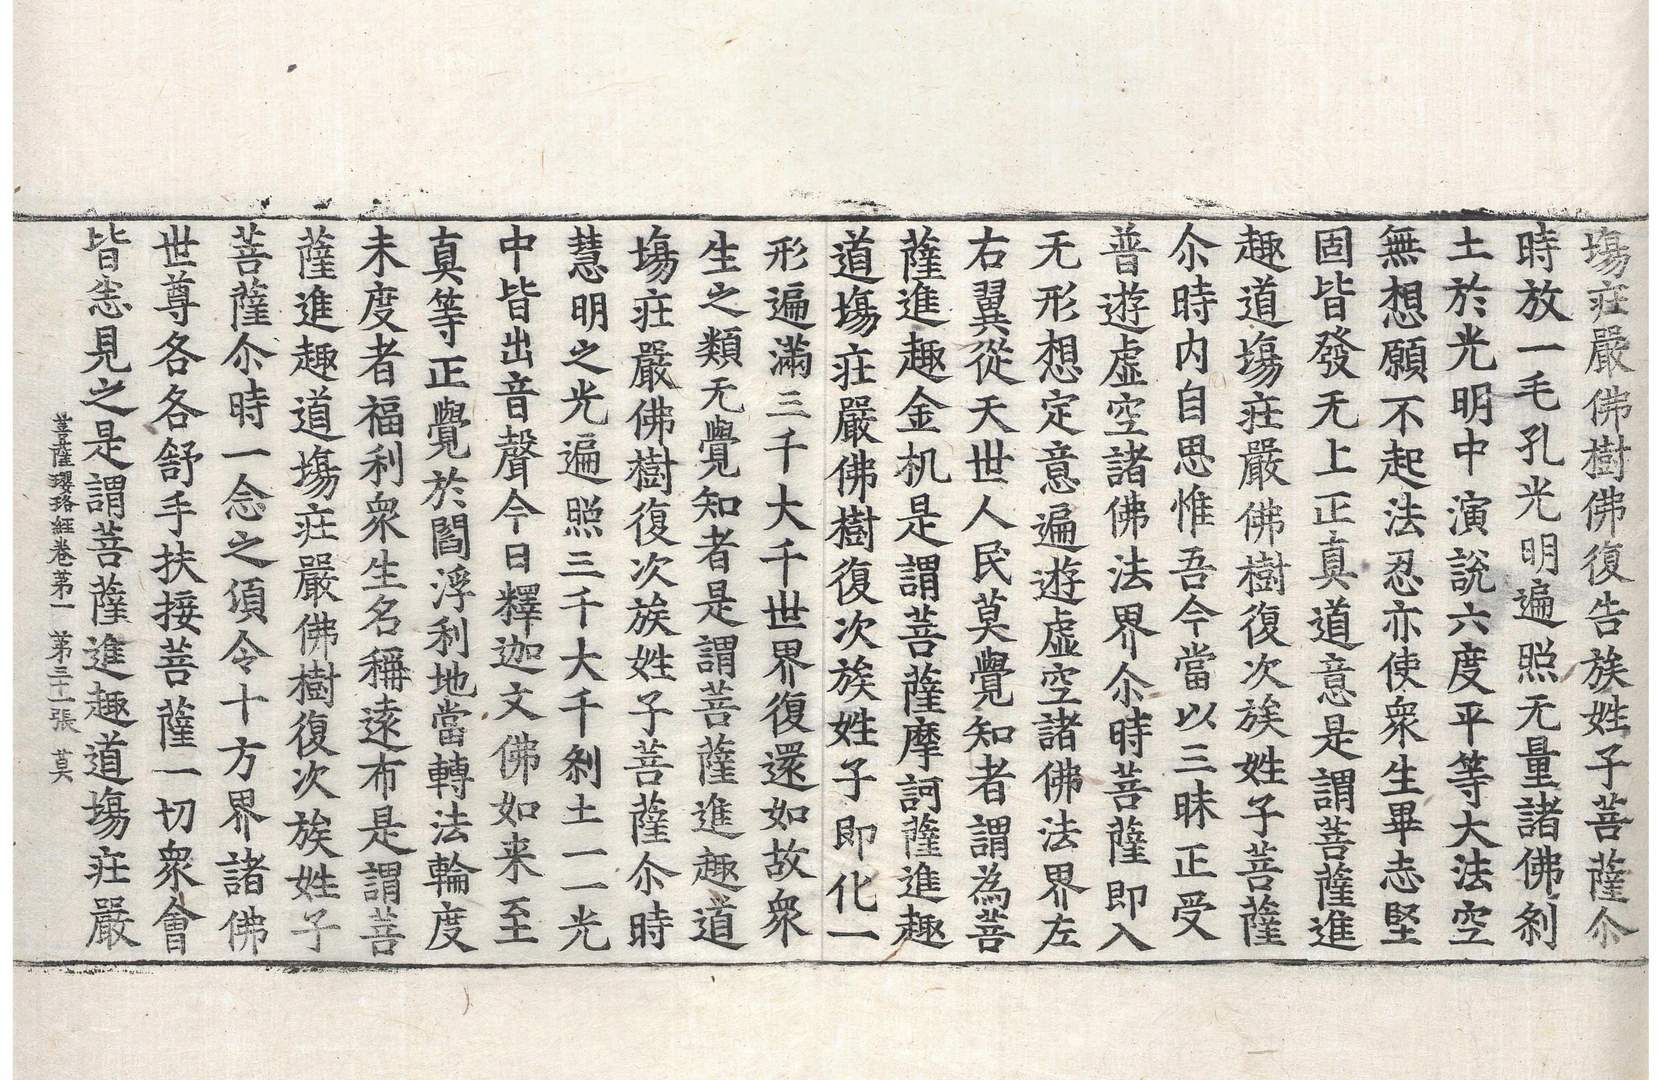 塲莊嚴佛樹佛復告族姓子菩薩尒
時放一毛孔光明遍照无量諸佛刹
土於光明中演說六度平等大法空
無想願不起法忍亦使衆生畢志堅
固皆發无上正真道意是謂菩薩進
趣道塲莊嚴佛樹復次族姓子菩薩
尒時内自思惟吾今當以三昧正受
普遊虛空諸佛法界尒時菩薩即入
无形想定意遍遊虛空諸佛法界左
右翼從天世人民莫覺知者謂為菩
薩進趣金机是謂菩薩摩訶薩進趣
道塲莊嚴佛樹復次族姓子即化一
形遍滿三千大千世界復還如故衆
生之類无覺知者是謂菩薩進趣道
塲莊嚴佛樹復次族姓子菩薩尒時
慧明之光遍照三千大千刹土一一光
中皆出音聲今日釋迦文佛如来至
真等正覺於閻浮利地當轉法輪度
未度者福利衆生名稱遠布是謂菩
薩進趣道塲莊嚴佛樹復次族姓子
菩薩尒時一念之頃令十方界諸佛
世尊各各舒手扶接菩薩一切衆會
皆悉見之是謂菩薩進趣道塲莊嚴
菩薩瓔珞經卷第一 第三十一張 莫